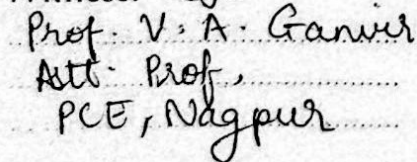 Prof. V. A. Ganvir
Astt. Prof,
PCE, Nagpur